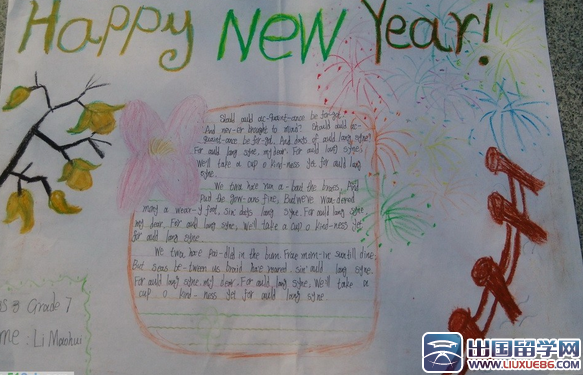 Happy New Year!
Should auld ac-quaint-ance be for-got
And nev-er brought to mind? Should auld ac-
quaint-ance be for-got, And days of auld lang syne?
For auld lang syne, my dear. For auld lang syne,
We'll take a cup o kind-ness yet for auld lang
syne.
We twa hae run a-bout the braes, And
pud the gow-ans fine, But we've wan-dered
many a wear-y foot, sin days lang syne. For auld lang syne
my dear, For auld lang syne, We'll take a cup o kind-ness yet
for auld lang syne.
We twa hae pai-dld in the burn, Frae morn-in sun till dine
But seas be-tween us braid hae roared, sin auld lang syne.
For auld lang syne, my dear. For auld lang syne, We'll take a
cup o kind-ness yet for auld lang syne
Grade 7
me: Li Maohui
出国留学网
WWW.LIUXUE86.COM